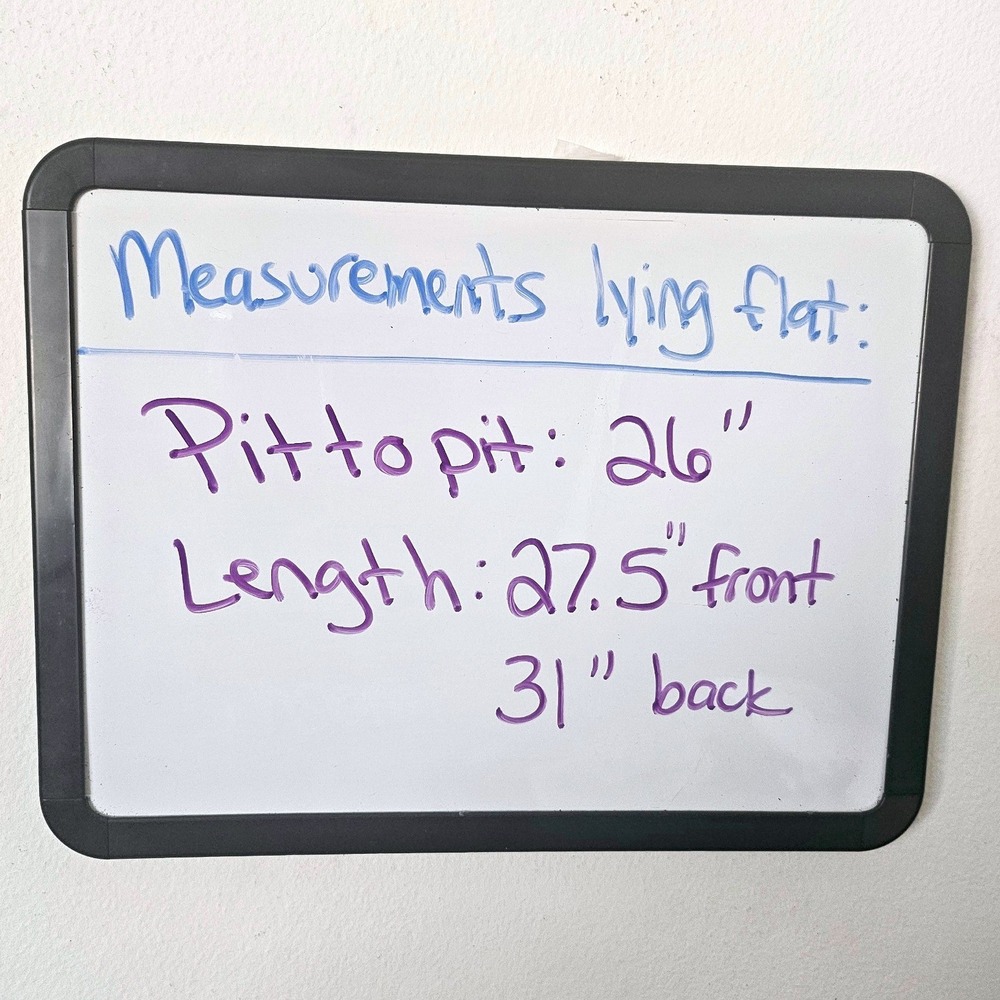 Measurements lying flat:
Pit to pit: 26"
Length: 27.5" front
31" back